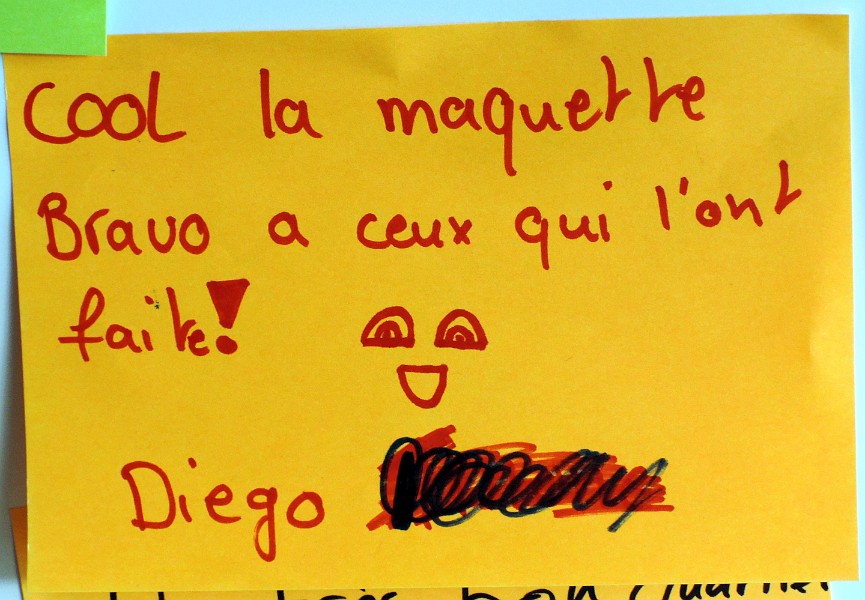 Cool la maquette
Bravo a ceux qui l'ont
faite!
Diego
bon